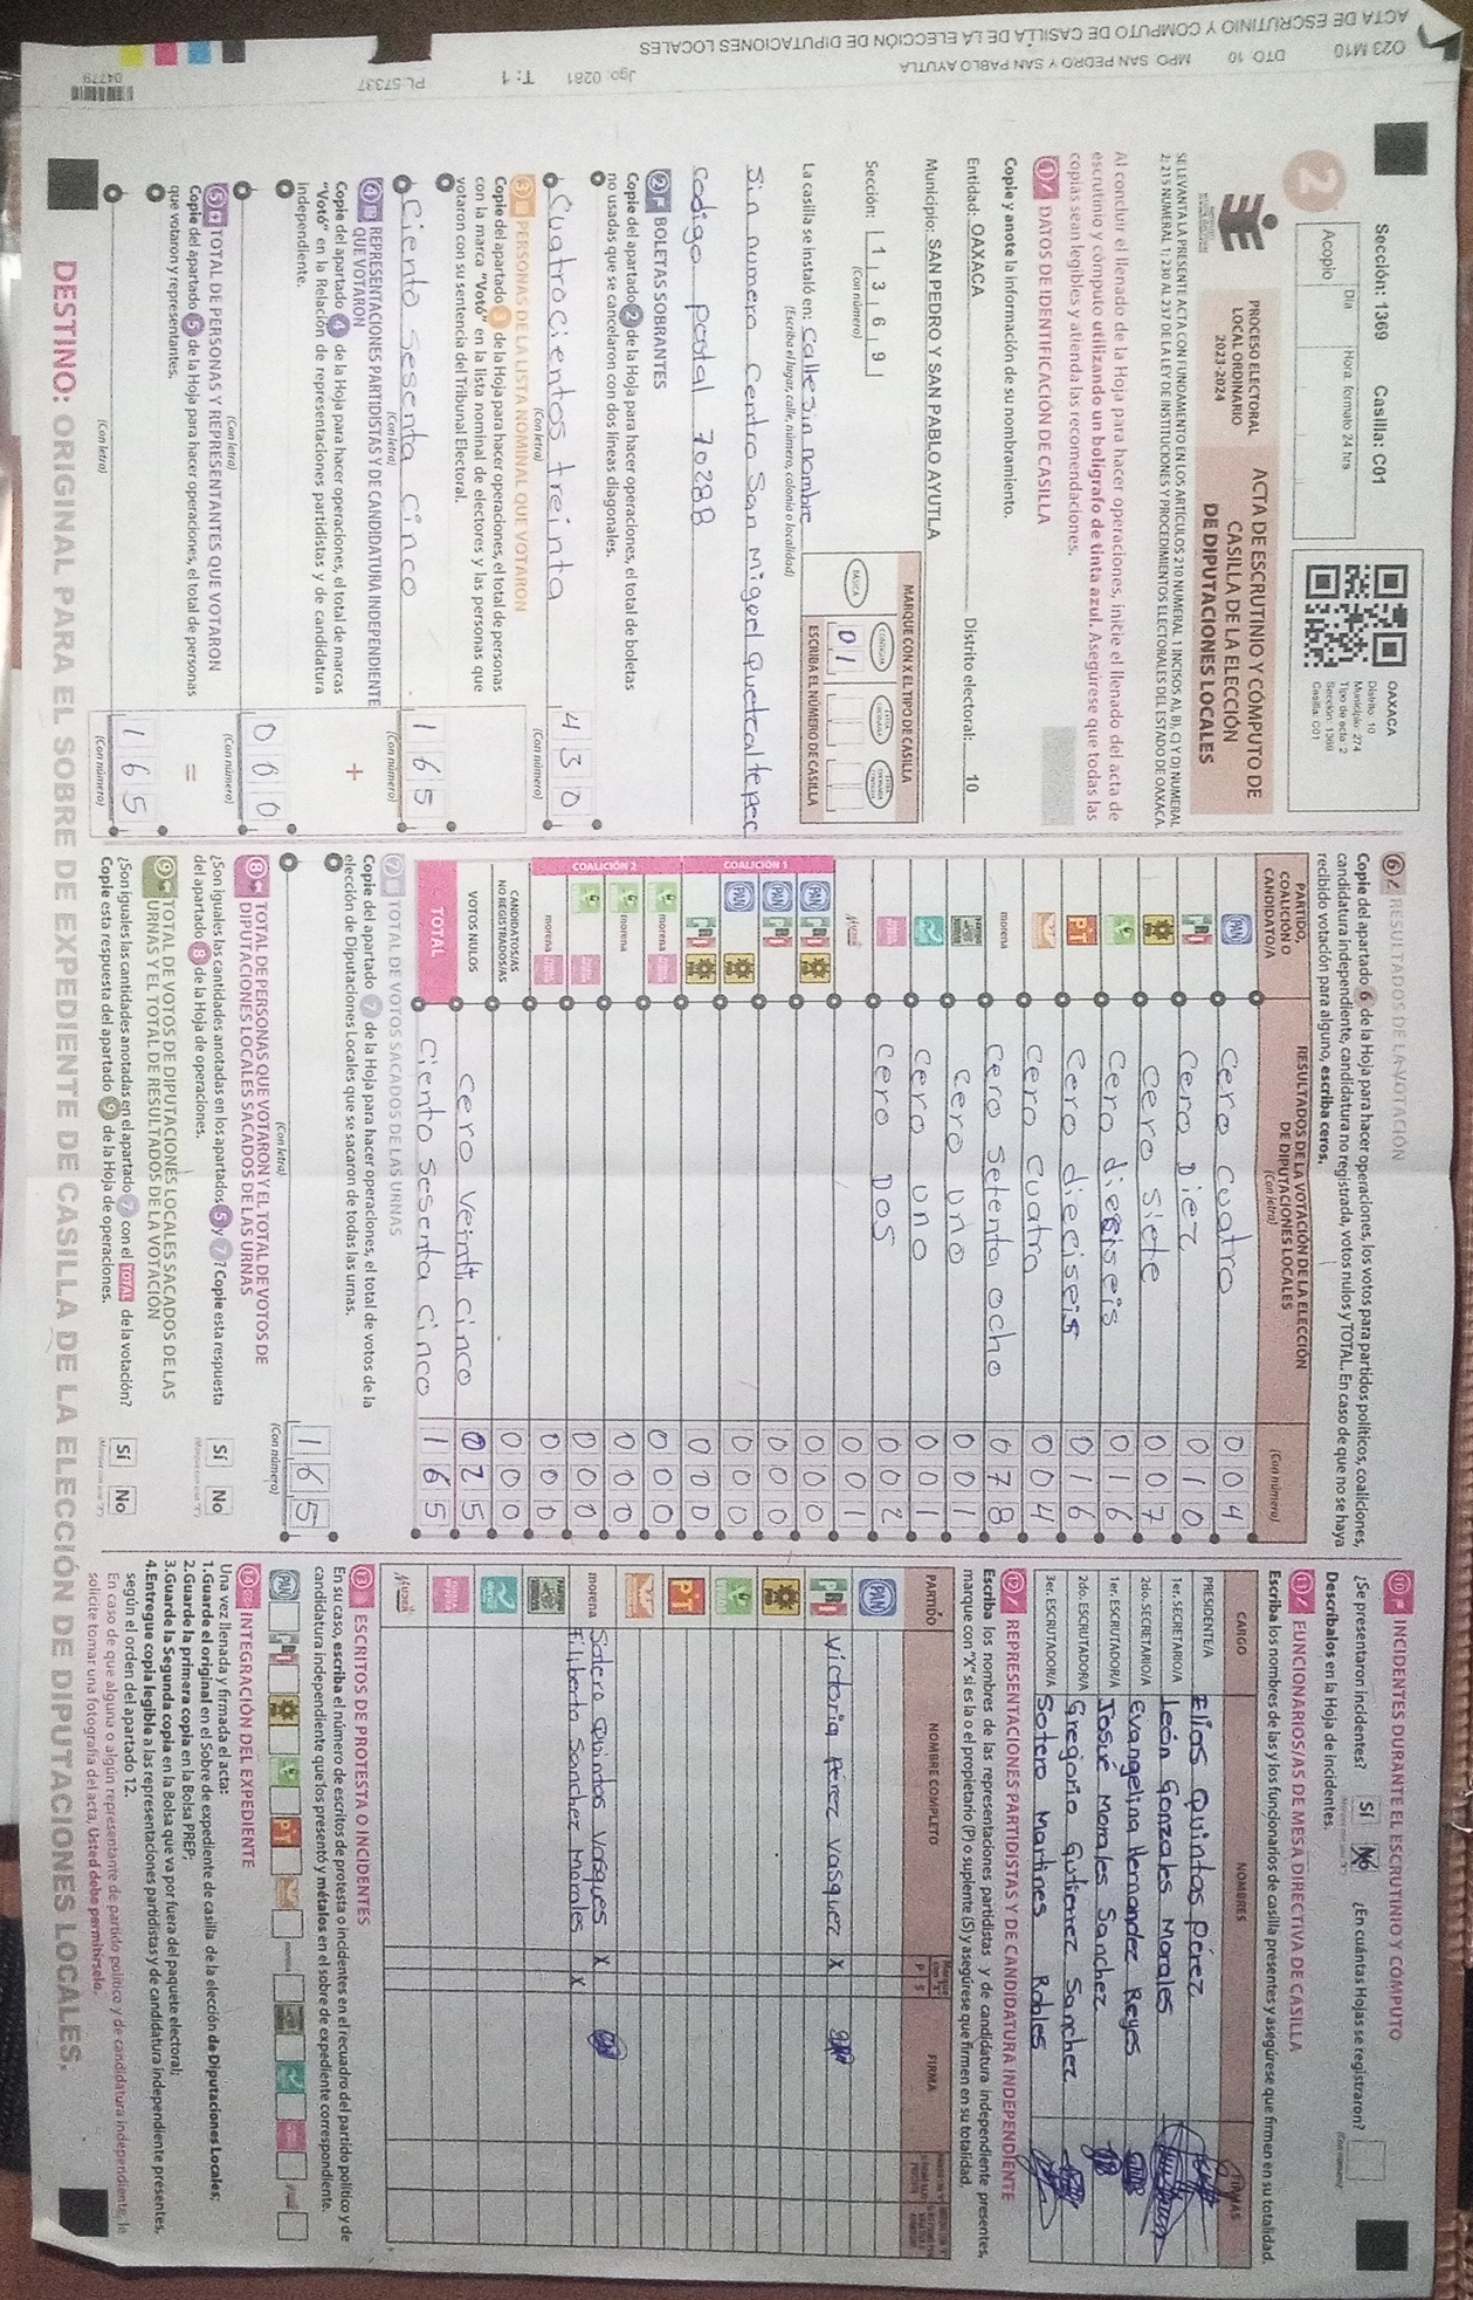 O23 M10 DTO: 10 MPO: SAN PEDRO Y SAN PABLO AYUTLA Jgo: 0281 T: 1 PL:57337 04779
ACTA DE ESCRUTINIO Y COMPUTO DE CASILLA DE LA ELECCIÓN DE DIPUTACIONES LOCALES
Sección: 1369 Casilla: C01
Día Hora: formato 24 hrs
Acopio
2
OAXACA
Distrito: 10
Municipio: 274
Tipo de acta: 2
Sección: 1369
Casilla: C01
PROCESO ELECTORAL
LOCAL ORDINARIO
2023-2024
ACTA DE ESCRUTINIO Y CÓMPUTO DE
CASILLA DE LA ELECCIÓN
DE DIPUTACIONES LOCALES
SE LEVANTA LA PRESENTE ACTA CON FUNDAMENTO EN LOS ARTÍCULOS 210 NUMERAL 1 INCISOS A), B), C) Y D) NUMERAL
2; 215 NUMERAL 1; 230 AL 237 DE LA LEY DE INSTITUCIONES Y PROCEDIMIENTOS ELECTORALES DEL ESTADO DE OAXACA.
Al concluir el llenado de la Hoja para hacer operaciones, inicie el llenado del acta de
escrutinio y cómputo utilizando un bolígrafo de tinta azul. Asegúrese que todas las
copias sean legibles y atienda las recomendaciones.
1 DATOS DE IDENTIFICACIÓN DE CASILLA
Copie y anote la información de su nombramiento.
Entidad: OAXACA Distrito electoral: 10
Municipio: SAN PEDRO Y SAN PABLO AYUTLA
Sección: 1 3 6 9
(Con número)
MARQUE CON X EL TIPO DE CASILLA
BÁSICA
0 1
ESCRIBA EL NÚMERO DE CASILLA
La casilla se instaló en: Calle Sin nombre
(Escriba el lugar, calle, número, colonia o localidad)
Sin numero Centro San Miguel Quetzaltepec
Codigo postal 70288
2 BOLETAS SOBRANTES
Copie del apartado 2 de la Hoja para hacer operaciones, el total de boletas
no usadas que se cancelaron con dos líneas diagonales.
Cuatrocientos treinta 4 3 0
(Con letra) (Con número)
3 PERSONAS DE LA LISTA NOMINAL QUE VOTARON
Copie del apartado 3 de la Hoja para hacer operaciones, el total de personas
con la marca "Votó" en la lista nominal de electores y las personas que
votaron con su sentencia del Tribunal Electoral.
Ciento sesenta cinco 1 6 5
(Con letra) (Con número)
4 REPRESENTACIONES PARTIDISTAS Y DE CANDIDATURA INDEPENDIENTE
QUE VOTARON
Copie del apartado 4 de la Hoja para hacer operaciones, el total de marcas
"Votó" en la Relación de representaciones partidistas y de candidatura
independiente.
+
0 0 0
(Con letra) (Con número)
5 TOTAL DE PERSONAS Y REPRESENTANTES QUE VOTARON
Copie del apartado 5 de la Hoja para hacer operaciones, el total de personas
que votaron y representantes.
=
1 6 5
(Con letra) (Con número)
6 RESULTADOS DE LA VOTACIÓN
Copie del apartado 6 de la Hoja para hacer operaciones, los votos para partidos políticos, coaliciones,
candidatura independiente, candidatura no registrada, votos nulos y TOTAL. En caso de que no se haya
recibido votación para alguno, escriba ceros.
PARTIDO,
COALICIÓN O
CANDIDATO/A
RESULTADOS DE LA VOTACIÓN DE LA ELECCIÓN
DE DIPUTACIONES LOCALES
(Con letra) (Con número)
PAN Cero cuatro 0 0 4
PRI Cero Diez 0 1 0
PRD Cero siete 0 0 7
Cero dieciseis 0 1 6
PT Cero dieciseis 0 1 6
Cero cuatro 0 0 4
morena Cero setenta ocho 0 7 8
Cero uno 0 0 1
Cero uno 0 0 1
Cero Dos 0 0 2
Mujer 0 0 1
COALICIÓN 1
PAN PRI PRD 0 0 0
PAN PRI 0 0 0
PAN PRD 0 0 0
PRI PRD 0 0 0
COALICIÓN 2
morena 0 0 0
morena 0 0 0
0 0 0
morena 0 0 0
CANDIDATOS/AS
NO REGISTRADOS/AS 0 0 0
VOTOS NULOS Cero Veinti cinco 0 2 5
TOTAL Ciento sesenta cinco 1 6 5
7 TOTAL DE VOTOS SACADOS DE LAS URNAS
Copie del apartado 7 de la Hoja para hacer operaciones, el total de votos de la
elección de Diputaciones Locales que se sacaron de todas las urnas.
1 6 5
(Con letra) (Con número)
8 TOTAL DE PERSONAS QUE VOTARON Y EL TOTAL DE VOTOS DE
DIPUTACIONES LOCALES SACADOS DE LAS URNAS
¿Son iguales las cantidades anotadas en los apartados 5 y 7? Copie esta respuesta
del apartado 8 de la Hoja de operaciones.
Sí No
9 TOTAL DE VOTOS DE DIPUTACIONES LOCALES SACADOS DE LAS
URNAS Y EL TOTAL DE RESULTADOS DE LA VOTACIÓN
¿Son iguales las cantidades anotadas en el apartado 7 con el TOTAL de la votación?
Copie esta respuesta del apartado 9 de la Hoja de operaciones.
Sí No
10 INCIDENTES DURANTE EL ESCRUTINIO Y CÓMPUTO
¿Se presentaron incidentes? Sí No ¿En cuántas Hojas se registraron?
Descríbalos en la Hoja de incidentes.
11 FUNCIONARIOS/AS DE MESA DIRECTIVA DE CASILLA
Escriba los nombres de las y los funcionarios de casilla presentes y asegúrese que firmen en su totalidad.
CARGO NOMBRES FIRMAS
PRESIDENTE/A Elías Quintas Pérez
1er. SECRETARIO/A León Gonzales Morales
2do. SECRETARIO/A Evangelina Hernandez Reyes
1er. ESCRUTADOR/A Josué Morales Sanchez
2do. ESCRUTADOR/A Gregorio Gutierrez Sanchez
3er. ESCRUTADOR/A Sotero Martines Robles
12 REPRESENTACIONES PARTIDISTAS Y DE CANDIDATURA INDEPENDIENTE
Escriba los nombres de las representaciones partidistas y de candidatura independiente presentes,
marque con "X" si es la o el propietario (P) o suplente (S) y asegúrese que firmen en su totalidad.
PARTIDO NOMBRE COMPLETO P S FIRMA
PAN
PRI Victoria Pérez Vasquez X
PRD
PT
morena Sotero Quintas Vasques X
Filiberto Sanchez Morales X
Mujer
13 ESCRITOS DE PROTESTA O INCIDENTES
En su caso, escriba el número de escritos de protesta o incidentes en el recuadro del partido político y de
candidatura independiente que los presentó y métalos en el sobre de expediente correspondiente.
PAN PRI PRD PT
14 INTEGRACIÓN DEL EXPEDIENTE
Una vez llenada y firmada el acta:
1.Guarde el original en el Sobre de expediente de casilla de la elección de Diputaciones Locales;
2.Guarde la primera copia en la Bolsa PREP;
3.Guarde la Segunda copia en la Bolsa que va por fuera del paquete electoral;
4.Entregue copia legible a las representaciones partidistas y de candidatura independiente presentes,
según el orden del apartado 12.
En caso de que alguna o algún representante de partido político y de candidatura independiente, le
solicite tomar una fotografía del acta, Usted debe permitírselo.
DESTINO: ORIGINAL PARA EL SOBRE DE EXPEDIENTE DE CASILLA DE LA ELECCIÓN DE DIPUTACIONES LOCALES.